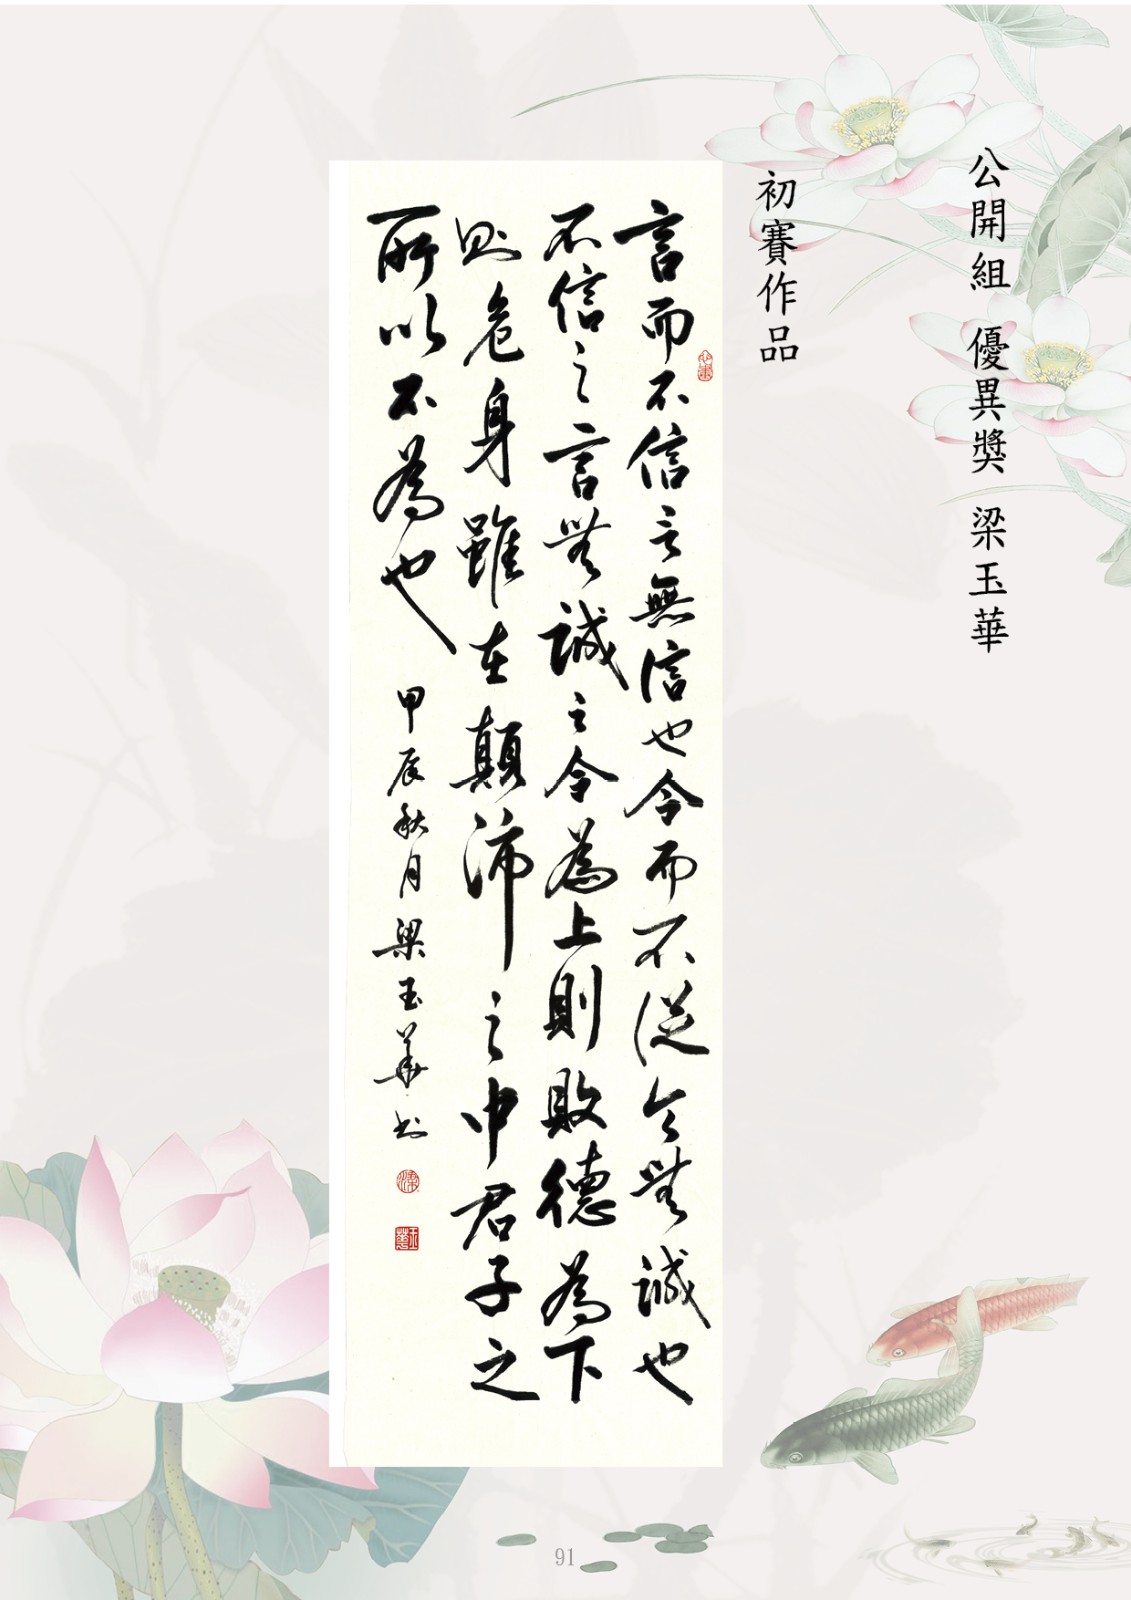 公開組 優異獎 梁玉華
初賽作品
言而不信言無信也令而不從令無誠也
不信之言無誠之令為上則敗德為下
則危身雖在顛沛之中君子之
所以不為也 甲辰秋月梁玉華书
玉華
91